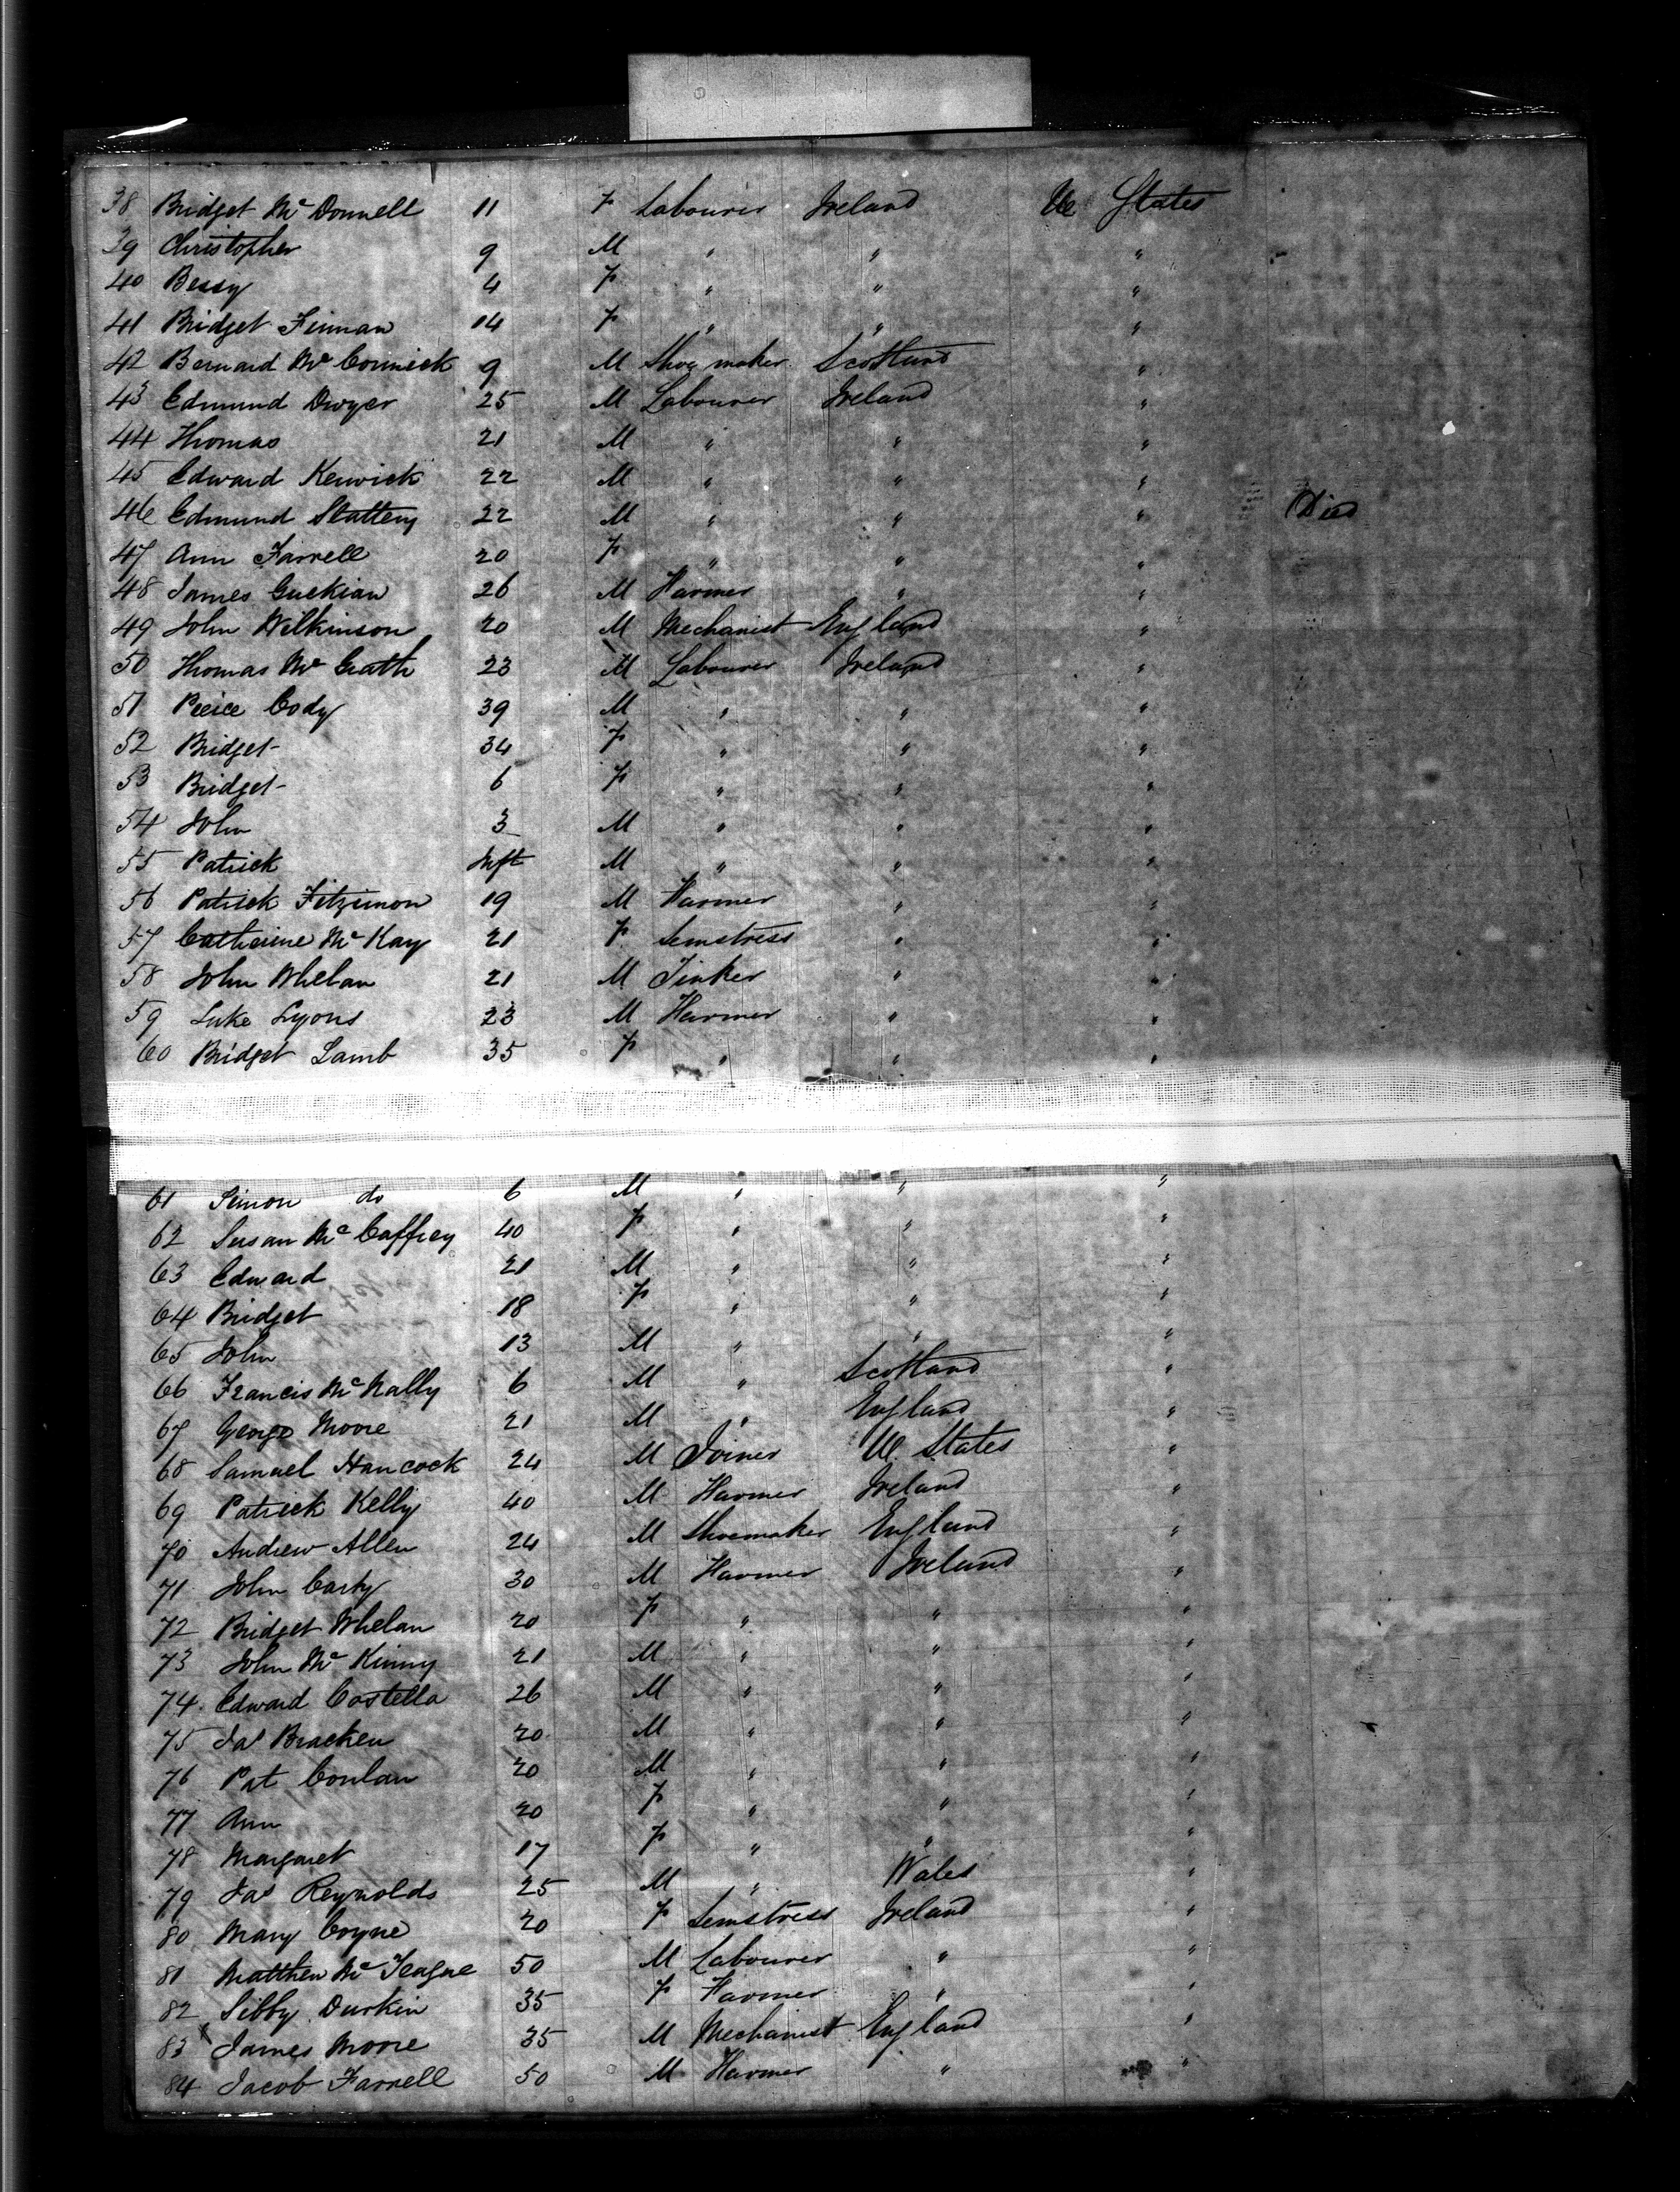 38 Bridget Mc Donnell 11 F Labourer Ireland Ue States
39 Christopher 9 M " " "
40 Bessy 4 F " " "
41 Bridget Finnan 14 F " " "
42 Bernard Mc Cormick 9 M Shoe maker Scotland "
43 Edmund Dwyer 25 M Labourer Ireland "
44 Thomas 21 M " " "
45 Edward Kenwick 22 M " " "
46 Edmund Slattery 22 M " " " Died
47 Ann Farrell 20 F " " "
48 James Guckian 26 M Farmer " "
49 John Wilkinson 20 M Mechanist England "
50 Thomas Mc Grath 23 M Labourer Ireland "
51 Peirce Cody 39 M " " "
52 Bridget 34 F " " "
53 Bridget 6 F " " "
54 John 3 M " " "
55 Patrick Inft M " " "
56 Patrick Fitzimon 19 M Farmer " "
57 Catherine Mc Kay 21 F Semstress " "
58 John Whelan 21 M Tinker " "
59 Luke Lyons 23 M Farmer " "
60 Bridget Lamb 35 F " " "
61 Simon do 6 M " " "
62 Susan Mc Caffrey 40 F " " "
63 Edward 21 M " " "
64 Bridget 18 F " " "
65 John 13 M " " "
66 Francis Mc Nally 6 M " Scotland "
67 George Moore 21 M " England "
68 Samuel Hancock 24 M Joiner Ue States "
69 Patrick Kelly 40 M Farmer Ireland "
70 Andrew Allen 24 M Shoemaker England "
71 John Carty 30 M Farmer Ireland "
72 Bridget Whelan 20 F " " "
73 John Mc Kinny 21 M " " "
74 Edward Costella 26 M " " "
75 Jas Bracken 20 M " " "
76 Pat Conlan 20 M " " "
77 Ann 20 F " " "
78 Margaret 17 F " " "
79 Jas Reynolds 25 M " Wales "
80 Mary Coyne 20 F Semstress Ireland "
81 Matthew Mc Teague 50 M Labourer " "
82 Sibby Durkin 35 F Farmer " "
83 James Moore 35 M Mechanist England "
84 Jacob Farrell 50 M Farmer " "